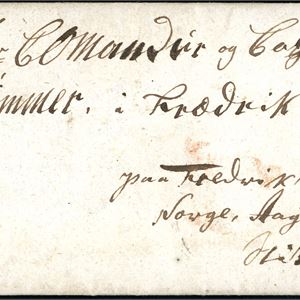 Comandür og Cap
immer, i Fredrik
paa Fredrik
Norge, Aag